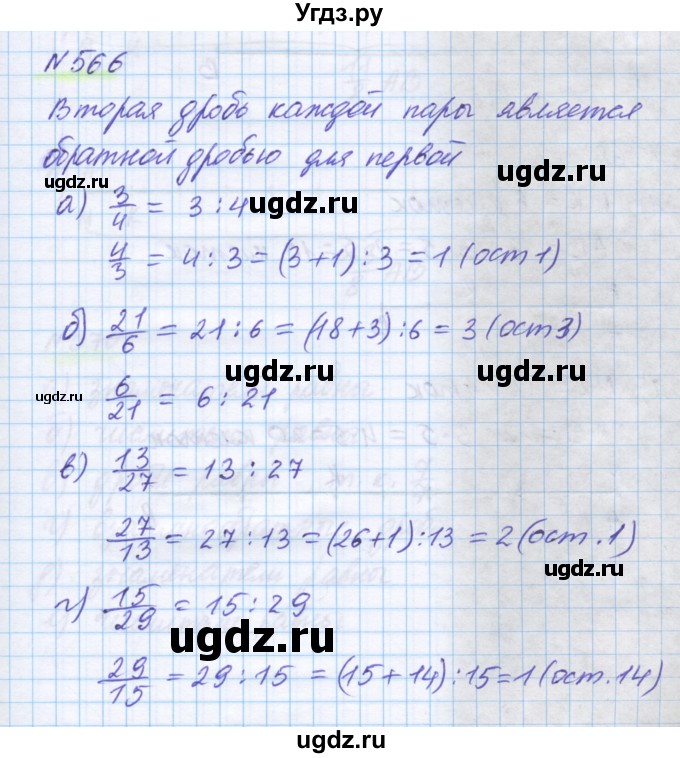 Угдз.ру
N 566
Вторая дробь каждой пары является
обратной дробью для первой
ugdz.ru
ugdz.ru
а) 3/4 = 3 : 4
ugdz.ru
4/3 = 4 : 3 = (3+1) : 3 = 1 (ост 1)
б) 21/6 = 21 : 6 = (18+3) : 6 = 3 (ост 3)
ugdz.ru
ugdz.ru
ugdz.ru
6/21 = 6 : 21
в) 13/27 = 13 : 27
27/13 = 27 : 13 = (26+1) : 13 = 2 (ост. 1)
ugdz.ru
г) 15/29 = 15 : 29
ugdz.ru
29/15 = 29 : 15 = (15+14) : 15 = 1 (ост. 14)
ugdz.ru